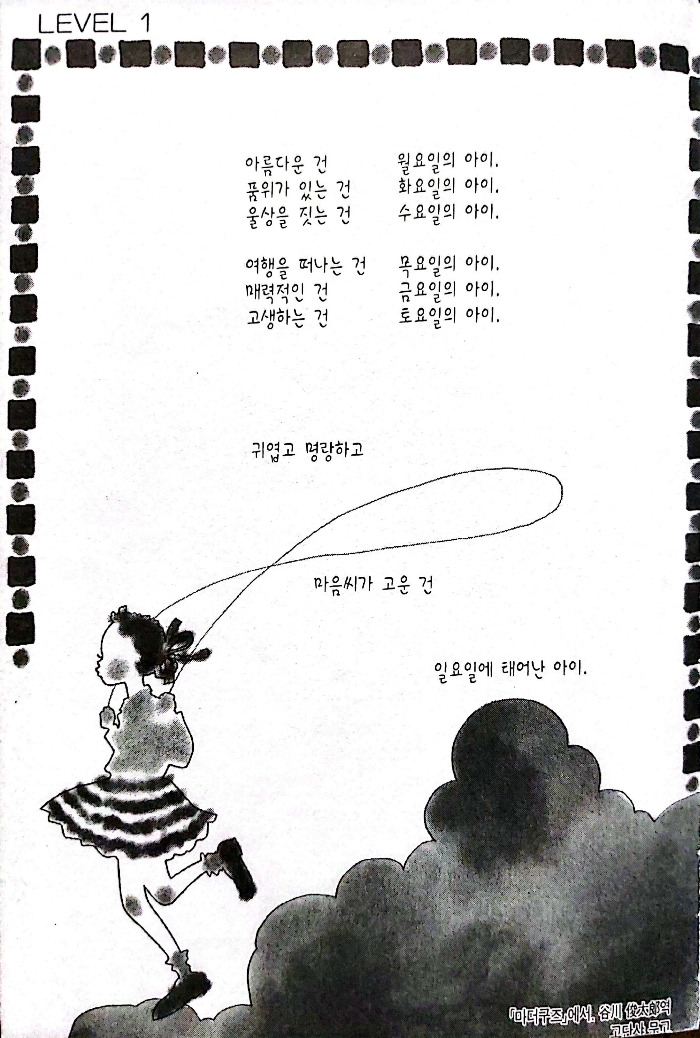 LEVEL 1
아름다운 건 월요일의 아이.
품위가 있는 건 화요일의 아이.
울상을 짓는 건 수요일의 아이.
여행을 떠나는 건 목요일의 아이.
매력적인 건 금요일의 아이.
고생하는 건 토요일의 아이.
귀엽고 명랑하고
마음씨가 고운 건
일요일에 태어난 아이.
『마더구즈』에서, 谷川 俊太郞역
고단샤 문고